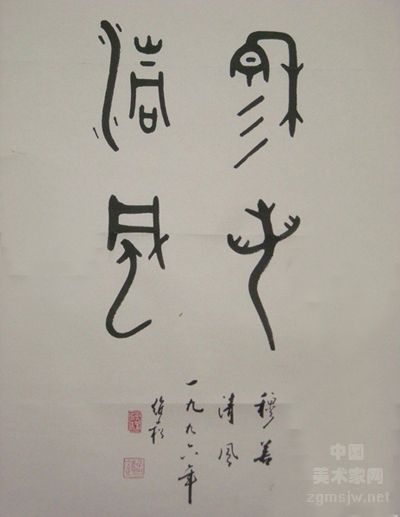 穆若
清風
穆若
清風
一九九六年
中国
美术家网
zgmsjw.net